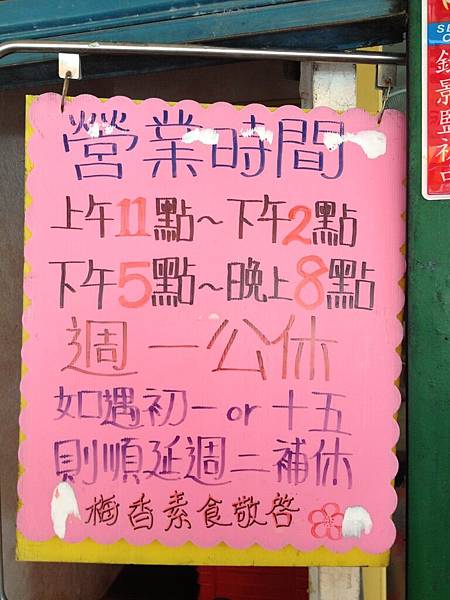 營業時間
上午11點～下午2點
下午5點～晚上8點
週一公休
如遇初一or十五
則順延週二補休
梅香素食敬啓
錄影監視中